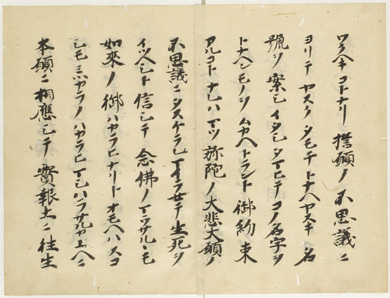 ワクヘキコトナリ 誓願ノ不思議ニ
ヨリテヤスクタモチトナヘヤスキ名
號ヲ案シイタシタマヒテコノ名字ヲ
トナヘンモノヲムカヘトラント御約束
アルコトナレハマツ弥陀ノ大悲大願ノ
不思議ニタスケラレマイラセテ生死ヲ
イツヘシト信シテ念佛ノマウサルヽモ
如來ノ御ハカラヒナリトオモヘハスコ
シモミツカラノハカラヒマシハラサルカユヘニ
本願ニ相應シテ實報土ニ往生